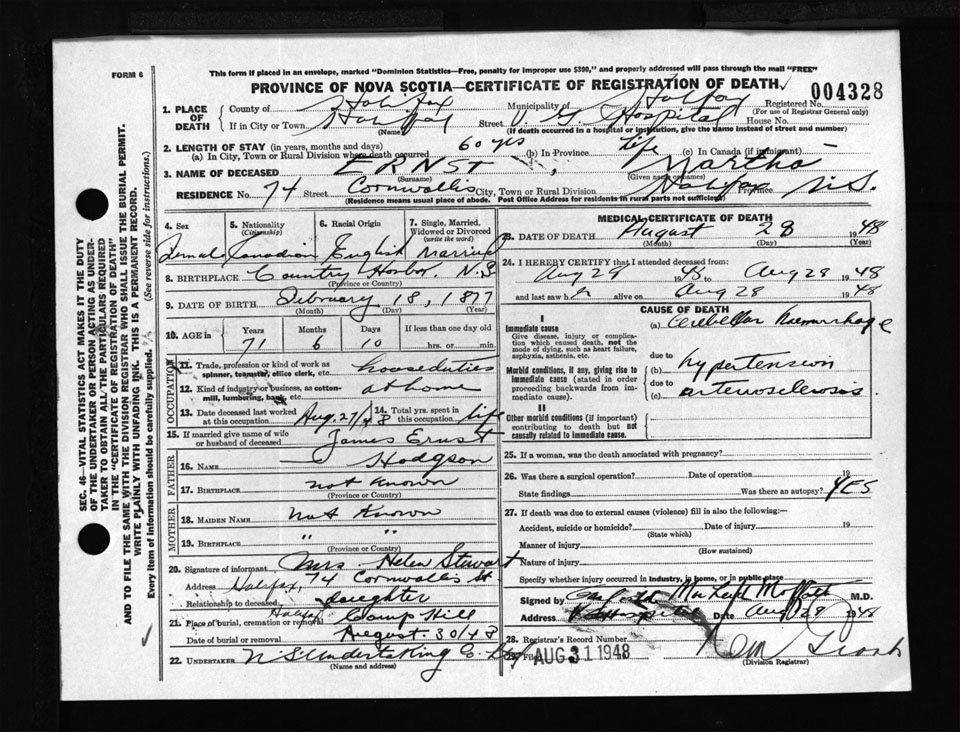 FORM 6
This form if placed in an envelope, marked "Dominion Statistics—Free, penalty for improper use $300," and properly addressed will pass through the mail "FREE"
PROVINCE OF NOVA SCOTIA—CERTIFICATE OF REGISTRATION OF DEATH
004328
1. PLACE OF DEATH
County of Halifax Municipality of Halifax Registered No.
(For use of Registrar General only)
If in City or Town Halifax Street V. G. Hospital House No.
(Name) (If death occurred in a hospital or institution, give the name instead of street and number)
2. LENGTH OF STAY (in years, months and days)
(a) In City, Town or Rural Division where death occurred 60 yrs (b) In Province Life (c) In Canada (if immigrant)
3. NAME OF DECEASED ERNST, Martha
(Surname) (Given name or names)
RESIDENCE No. 74 Street Cornwallis City, Town or Rural Division Halifax Province N.S.
(Residence means usual place of abode. Post Office Address for residents in rural parts not sufficient)
4. Sex
Female
5. Nationality
(Citizenship)
Canadian
6. Racial Origin
English
7. Single, Married, Widowed or Divorced
(write the word)
Married
8. BIRTHPLACE Country Harbor. N.S
(Province or Country)
9. DATE OF BIRTH February 18, 1877
(Month) (Day) (Year)
10. AGE in
Years Months Days If less than one day
71 6 10 hrs. or min.
OCCUPATION
11. Trade, profession or kind of work as spinner, teamster, office clerk, etc. house duties
12. Kind of industry or business, as cotton-mill, lumbering, bank, etc. at home
13. Date deceased last worked at this occupation Aug. 27/48
14. Total yrs. spent in this occupation Life
15. If married give name of wife or husband of deceased James Ernst
FATHER
16. NAME Hodgson
17. BIRTHPLACE not known
(Province or Country)
MOTHER
18. MAIDEN NAME not known
19. BIRTHPLACE " "
(Province or Country)
20. Signature of informant Mrs Helen Stewart
Address Halifax, 74 Cornwallis St
Relationship to deceased daughter
21. Place of burial, cremation or removal Halifax Camp Hill
Date of burial or removal August 30/48
22. UNDERTAKER N S Undertaking Co. Ltd
(Name and address)
MEDICAL CERTIFICATE OF DEATH
23. DATE OF DEATH August 28 1948
(Month) (Day) (Year)
24. I HEREBY CERTIFY that I attended deceased from:
Aug 28 1948 to Aug 28 1948
and last saw her alive on Aug 28 1948
CAUSE OF DEATH
I
Immediate cause
Give disease, injury or complication which caused death, not the mode of dying, such as heart failure, asphyxia, asthenia, etc.
(a) Cerebellar haemorrhage
due to
Morbid conditions, if any, giving rise to immediate cause (stated in order proceeding backwards from immediate cause).
(b) hypertension
due to
(c) arteriosclerosis
II
Other morbid conditions (if important) contributing to death but not causally related to immediate cause.
25. If a woman, was the death associated with pregnancy?
26. Was there a surgical operation? Date of operation 19
State findings Was there an autopsy? YES
27. If death was due to external causes (violence) fill in also the following:—
Accident, suicide or homicide? Date of injury 19
(State which)
Manner of injury
(How sustained)
Nature of injury
Specify whether injury occurred in industry, in home, or in public place
Signed by M.D.
Address Date Aug 28 1948
28. Registrar's Record Number
29. Filed AUG 31 1948
(Division Registrar)
SEC. 46—VITAL STATISTICS ACT MAKES IT THE DUTY OF THE UNDERTAKER OR PERSON ACTING AS UNDERTAKER TO OBTAIN ALL THE PARTICULARS REQUIRED IN THE "CERTIFICATE OF REGISTRATION OF DEATH" AND TO FILE THE SAME WITH THE DIVISION REGISTRAR WHO SHALL ISSUE THE BURIAL PERMIT.
WRITE PLAINLY WITH UNFADING INK. THIS IS A PERMANENT RECORD.
Every item of information should be carefully supplied. (See reverse side for instructions.)